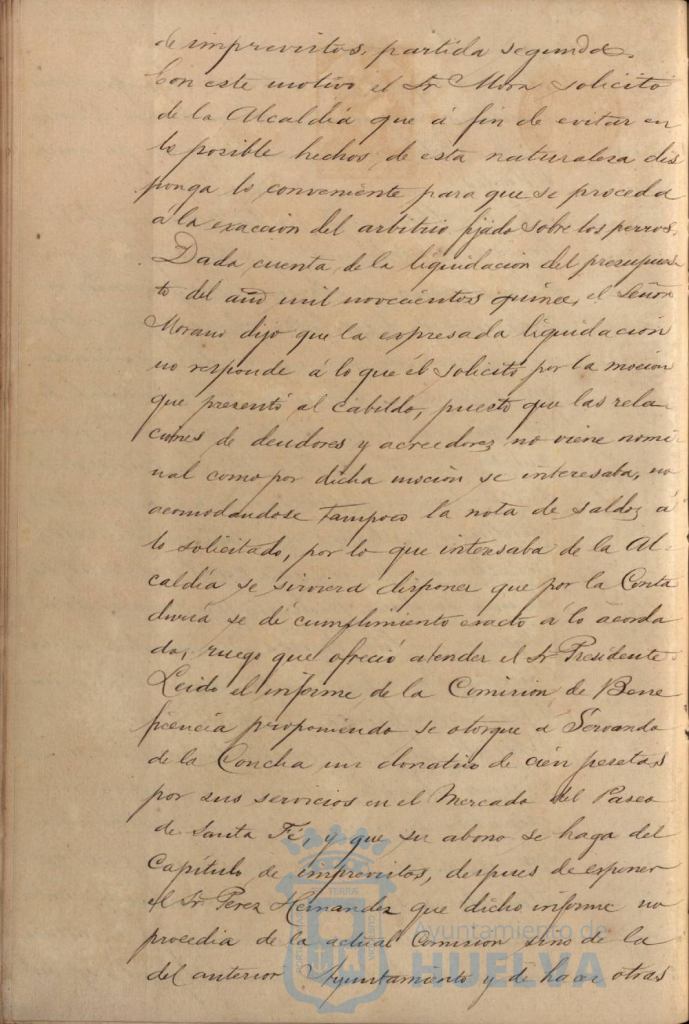 de imprevistos, partida segunda.
Con este motivo el Sr Mora solicitó
de la Alcaldiá que á fin de evitar en
lo posible hechos de esta naturalesa dis
ponga lo conveniente para que se proceda
á la exaccion del arbitrio fijado sobre los perros.
Dada cuenta de la liquidacion del presupues
to del año mil novecientos quince, el Señor
Morano dijo que la expresada liquidación
no responde á lo que él solicitó por la moción
que presentó al Cabildo, puesto que las rela
ciones de deudores y acreedores no viene nomi
nal como por dicha moción se interesaba, no
acomodandose tampoco la nota de saldos a
lo solicitado, por lo que interesaba de la Al-
caldía se sirviera disponer que por la Conta
duría se dé cumplimiento exacto á lo acorda
do, ruego que ofreció atender el Sr Presidente
Leido el informe de la Comision de Bene
ficencia proponiendo se otorgue á Servando
de la Concha un donativo de cien pesetas
por sus servicios en el Mercado del Paseo
de Santa Fé, y que su abono se haga del
Capítulo de imprevistos, despues de exponer
el Sr Perez Hernandez que dicho informe no
procedia de la actual Comision sino de la
del anterior Ayuntamiento y de hacer otras
Ayuntamiento de
HUELVA